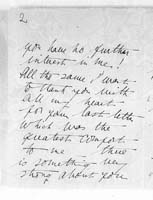 2
you have no further
interest in me!
All the same I want
to thank you with
all my heart
for your last letter
which was the
greatest comfort
to me there
is something very
strong about you